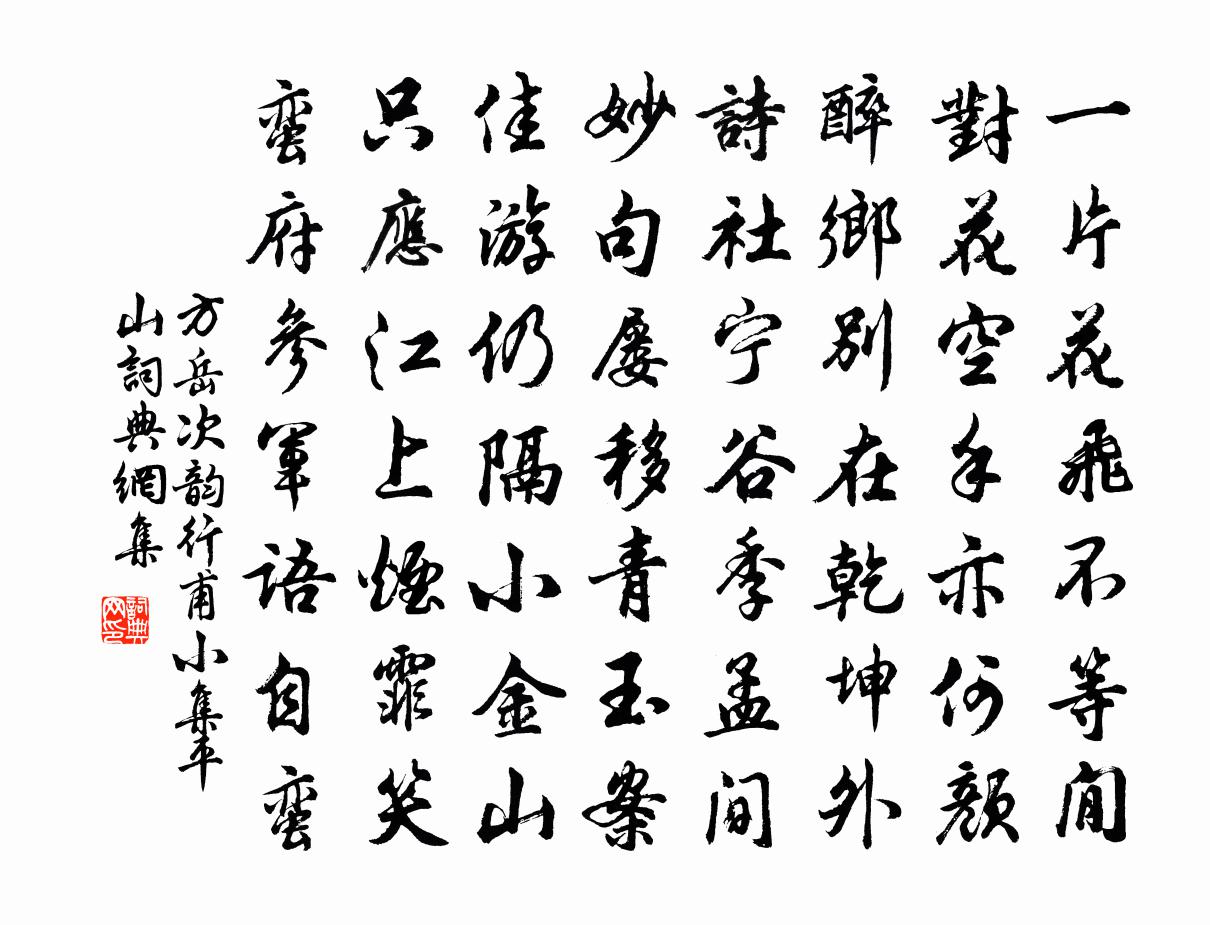 一片花飛不等閒
對花空手亦何顏
醉鄉別在乾坤外
詩社寧谷季孟間
妙句屢移青玉案
佳游仍隔小金山
只應江上煙霏笑
蠻府參軍語自蠻
方岳次韵行甫小集平
山詞典網集
詞典网印